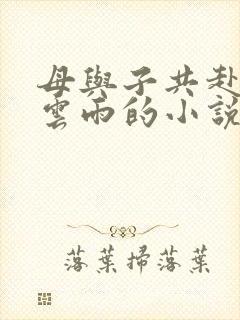 母與子共赴
雲雨的小說
落葉掃落葉